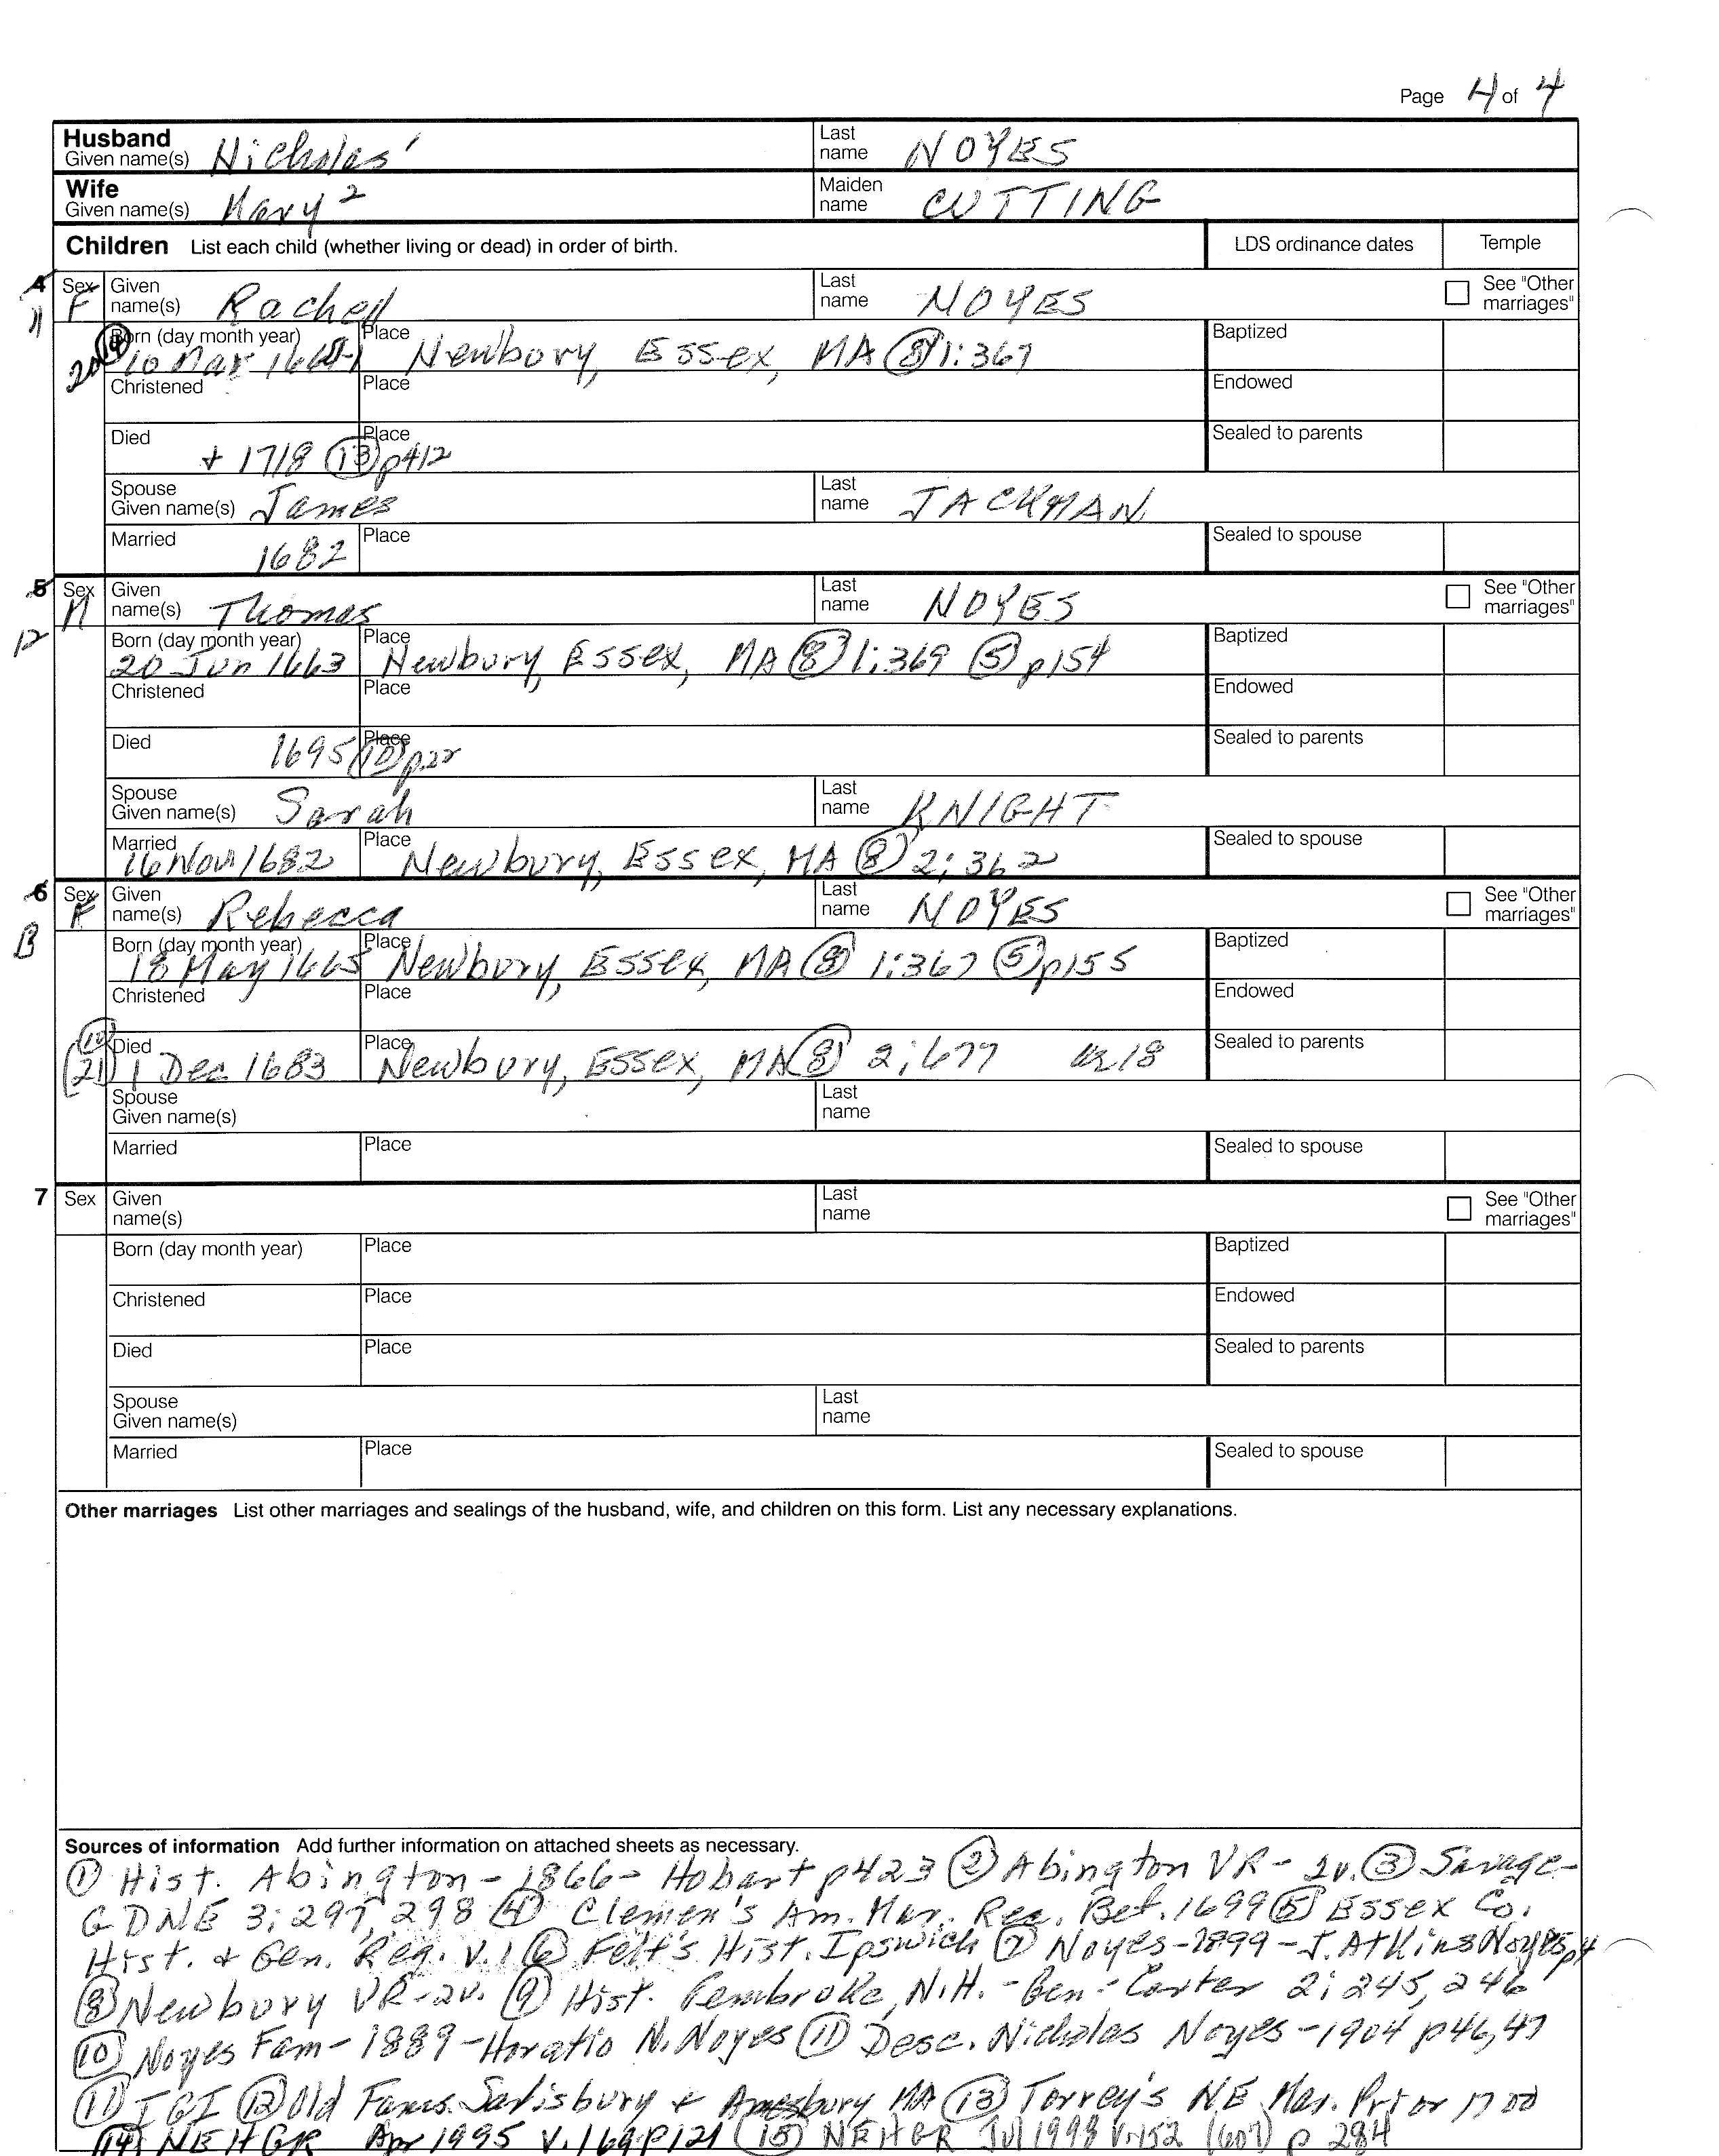 Page 4 of 4
Husband Given name(s) Nicholas¹ Last name NOYES
Wife Given name(s) Mary² Maiden name CUTTING
Children List each child (whether living or dead) in order of birth. LDS ordinance dates Temple
4 11 Sex F Given name(s) Rachel Last name NOYES See "Other marriages"
Born (day month year) Place Newbury, Essex, MA (8) 1:367 Baptized
Christened Place Endowed
Died + 1718 (13) p412 Place Sealed to parents
Spouse Given name(s) James Last name JACKMAN
Married 1682 Place Sealed to spouse
5 12 Sex M Given name(s) Thomas Last name NOYES See "Other marriages"
Born (day month year) 20 Jun 1663 Place Newbury, Essex, MA (8) 1:369 (5) p154 Baptized
Christened Place Endowed
Died 1695 (10) Place Sealed to parents
Spouse Given name(s) Sarah Last name KNIGHT
Married 16 Nov 1682 Place Newbury, Essex, MA (8) 2:362 Sealed to spouse
6 13 Sex F Given name(s) Rebecca Last name NOYES See "Other marriages"
Born (day month year) 18 May 1665 Place Newbury, Essex, MA (8) 1:367 (5) p155 Baptized
Christened Place Endowed
(21) Died 1 Dec 1683 Place Newbury, Essex, MA (8) 2:677 18 Sealed to parents
Spouse Given name(s) Last name
Married Place Sealed to spouse
7 Sex Given name(s) Last name See "Other marriages"
Born (day month year) Place Baptized
Christened Place Endowed
Died Place Sealed to parents
Spouse Given name(s) Last name
Married Place Sealed to spouse
Other marriages List other marriages and sealings of the husband, wife, and children on this form. List any necessary explanations.
Sources of information Add further information on attached sheets as necessary.
(1) Hist. Abington - 1866 - Hobart p423 (2) Abington VR - 2v. (3) Savage -
GDNE 3:297, 298 (4) Clemen's Am. Mar. Rec. Bef. 1699 (5) Essex Co.
Hist. & Gen. Reg. V.1 (6) Felt's Hist. Ipswich (7) Noyes - 1899 - J. Atkins Noyes p4
(8) Newbury VR - 2v. (9) Hist. Pembroke, N.H. - Gen - Carter 2:245, 246
(10) Noyes Fam - 1889 - Horatio N. Noyes (11) Desc. Nicholas Noyes - 1904 p46, 47
(11) IGI (12) Old Fams. Salisbury & Amesbury MA (13) Torrey's N.E. Mar. Prior 1700
(14) NEHGR Apr 1995 V.149 p121 (15) NEHGR Jul 1998 V.152 (607) p 284